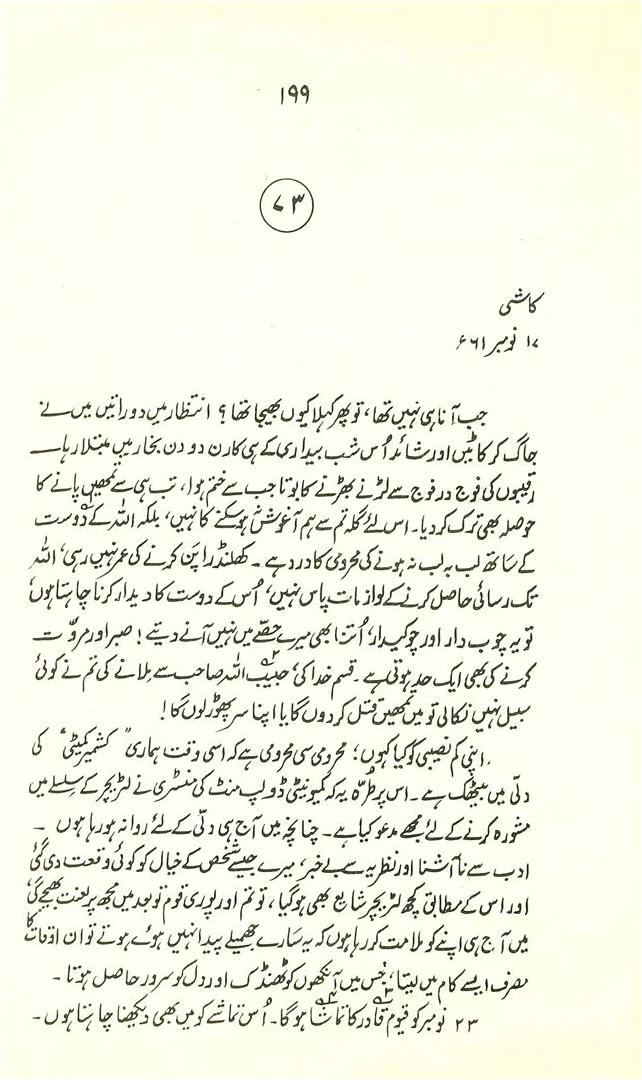 ۱۹۹
۷۳
کاشی
۱۷ نومبر ۶۶۱
جب آنا ہی نہیں تھا، تو پھر کہلا کیوں بھیجا تھا؟ انتظار میں دو راتیں میں نے
جاگ کر کاٹیں اور شائد اُس شب بیداری کے ہی کارن دو دن بخار میں مبتلا رہا۔
رقیبوں کی فوج در فوج سے لڑنے بھڑنے کا بوتا جب سے ختم ہوا، تب ہی سے تمھیں پانے کا
حوصلہ بھی ترک کر دیا۔ اس لئے گلہ تم سے ہم آغوش ہو سکنے کا نہیں، بلکہ اللہ کے دوست
کے ساتھ لب بہ لب نہ ہونے کی محرومی کا درد ہے۔ کھلنڈراپن کرنے کی عمر نہیں رہی، اللہ
تک رسائی حاصل کرنے کے لوازمات پاس نہیں، اُس کے دوست کا دیدار کرنا چاہتا ہوں،
تو یہ چوب دار اور چوکیدار، اُتنا بھی میرے حصّے میں نہیں آنے دیتے! صبر اور مروّت
کرنے کی بھی ایک حد ہوتی ہے۔ قسم خدا کی، حبیب اللہ صاحب سے ملانے کی تم نے کوئی
سبیل نہیں نکالی تو میں تمھیں قتل کر دوں گا یا اپنا سر پھوڑ لوں گا!
اپنی کم نصیبی کو کیا کہوں؛ محرومی سی محرومی ہے کہ اسی وقت ہماری "کشمیر کمیٹی" کی
دلّی میں بیٹھک ہے۔ اس پر طُرّہ یہ کہ کمیونیٹی ڈولپ منٹ کی منسٹری نے لٹریچر کے سلسلے میں
مشورہ کرنے کے لئے مجھے مدعو کیا ہے۔ چنانچہ میں آج ہی دلّی کے لئے روانہ ہو رہا ہوں۔
ادب سے ناآشنا اور نظریہ سے بے خبر، میرے جیسے شخص کے خیال کو کوئی وقعت دی گئی
اور اس کے مطابق کچھ لٹریچر شایع بھی ہو گیا، تو تم اور پوری قوم تو بعد میں مجھ پر لعنت بھیجے گی،
میں آج ہی اپنے کو ملامت کر رہا ہوں کہ یہ سارے جھمیلے پیدا نہیں ہوئے ہوتے تو ان اوقات کا
مصرف ایسے کام میں لیتا، جس میں آنکھوں کو ٹھنڈک اور دل کو سرور حاصل ہوتا۔
۲۳ نومبر کو قیوم قادر کا تماشا ہوگا۔ اُس تماشے کو میں بھی دیکھنا چاہتا ہوں۔